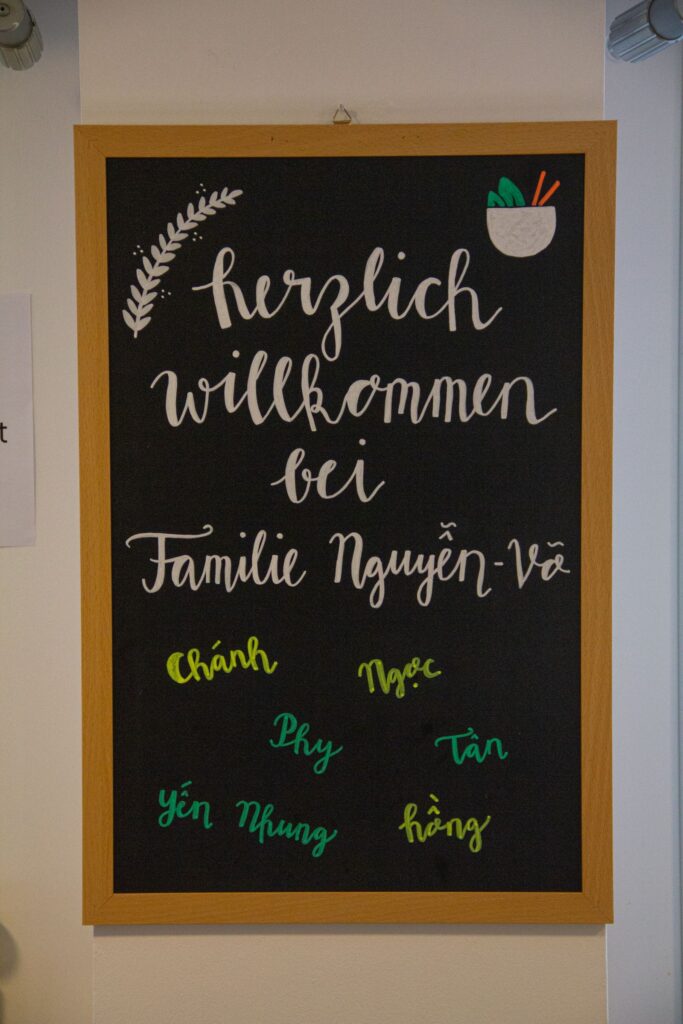 herzlich
willkommen
bei
Familie Nguyễn-Võ
Chánh Ngọc
Phy Tân
Yến Nhung hồng
t